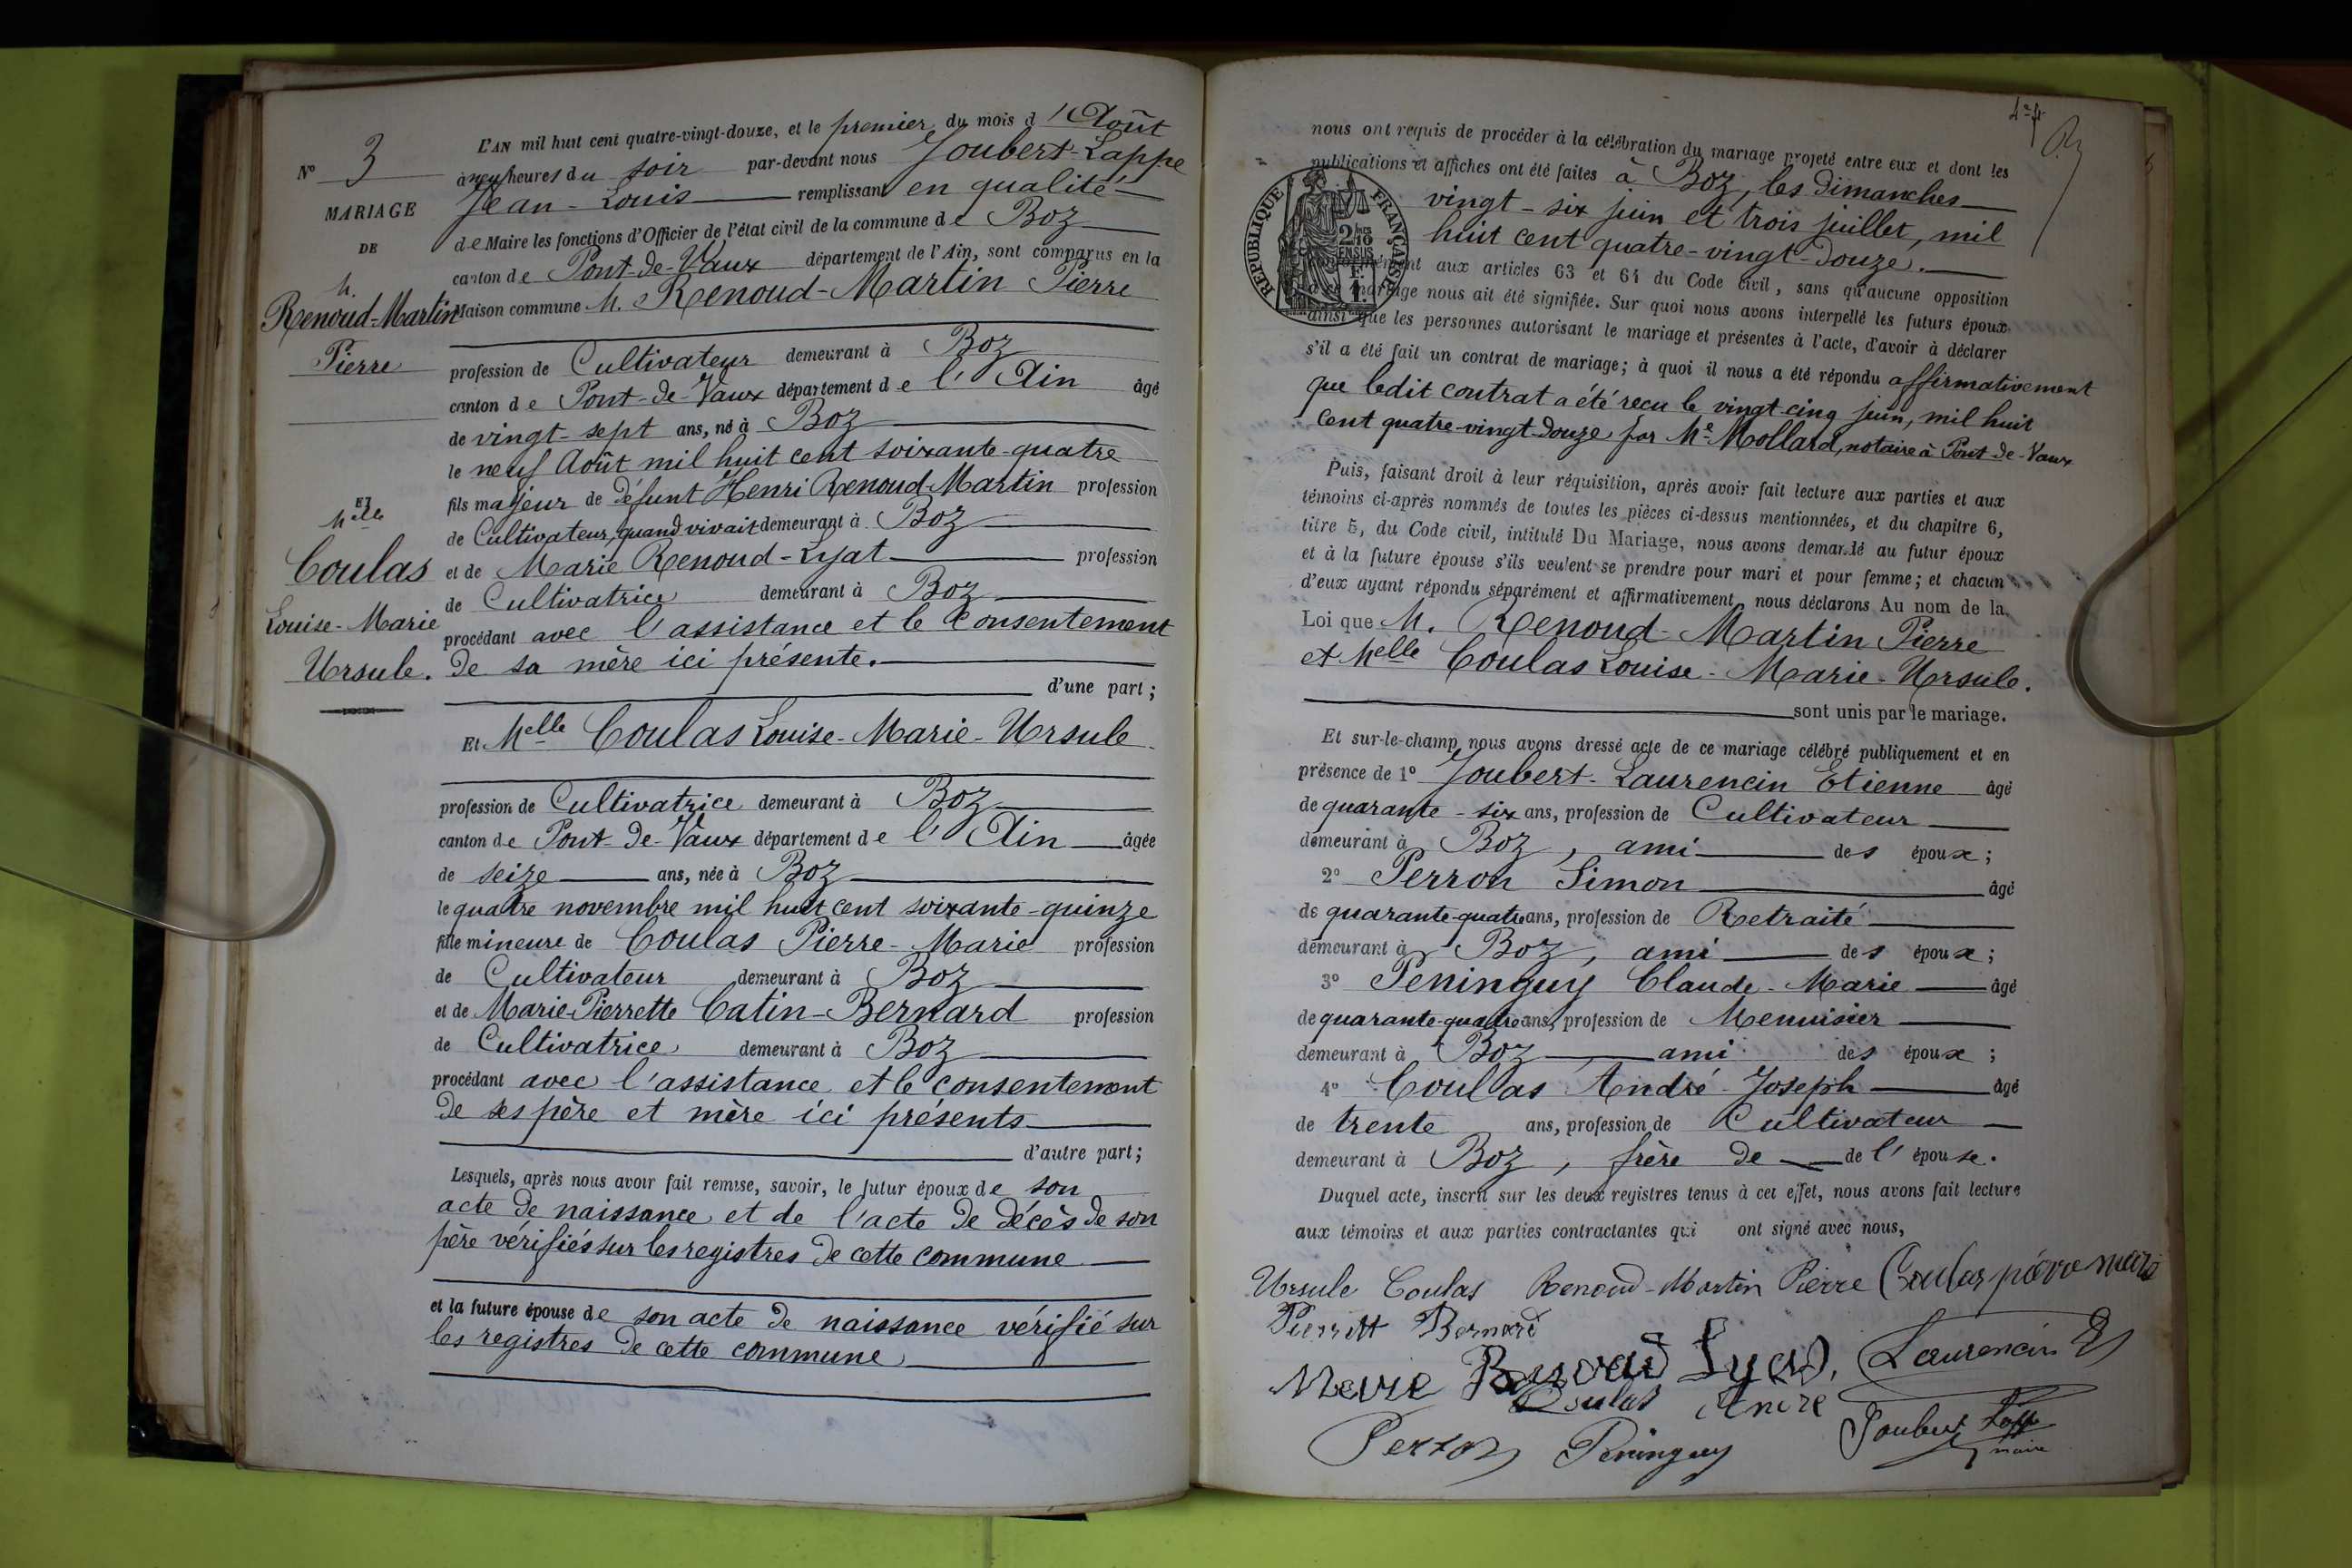 N° 3
MARIAGE
DE
M.
Renoud-Martin
Pierre
ET
Melle
Coulas
Louise-Marie
Ursule.
L'AN mil huit cent quatre-vingt-douze, et le premier du mois d'Août
à neuf heures du soir par-devant nous Joubert-Lappe
Jean-Louis remplissant en qualité
de Maire les fonctions d'Officier de l'état civil de la commune de Boz
canton de Pont-de-Vaux département de l'Ain, sont comparus en la
Maison commune M. Renoud-Martin Pierre
profession de Cultivateur demeurant à Boz
canton de Pont-de-Vaux département de l'Ain âgé
de vingt-sept ans, né à Boz
le neuf Août mil huit cent soixante-quatre
fils majeur de défunt Henri Renoud-Martin profession
de Cultivateur, quand vivait demeurant à Boz
et de Marie Renoud-Lyat profession
de Cultivatrice demeurant à Boz
procédant avec l'assistance et le Consentement
de sa mère ici présente.
d'une part;
Et Melle Coulas Louise-Marie-Ursule
profession de Cultivatrice demeurant à Boz
canton de Pont-de-Vaux département de l'Ain âgée
de seize ans, née à Boz
le quatre novembre mil huit cent soixante-quinze
fille mineure de Coulas Pierre-Marie profession
de Cultivateur demeurant à Boz
et de Marie-Pierrette Catin-Bernard profession
de Cultivatrice demeurant à Boz
procédant avec l'assistance et le consentement
de ses père et mère ici présents
d'autre part;
Lesquels, après nous avoir fait remise, savoir, le futur époux de son
acte de naissance et de l'acte de décès de son
père vérifiés sur les registres de cette commune
et la future épouse de son acte de naissance vérifié sur
les registres de cette commune
nous ont requis de procéder à la célébration du mariage projeté entre eux et dont les
publications et affiches ont été faites à Boz, les dimanches
vingt-six juin et trois juillet, mil
huit cent quatre-vingt-douze.
RÉPUBLIQUE FRANÇAISE
conformément aux articles 63 et 64 du Code civil, sans qu'aucune opposition
mariage nous ait été signifiée. Sur quoi nous avons interpellé les futurs époux
ainsi que les personnes autorisant le mariage et présentes à l'acte, d'avoir à déclarer
s'il a été fait un contrat de mariage; à quoi il nous a été répondu affirmativement
que ledit contrat a été reçu le vingt-cinq juin, mil huit
cent quatre-vingt-douze par Me Mollard, notaire à Pont-de-Vaux
Puis, faisant droit à leur réquisition, après avoir fait lecture aux parties et aux
témoins ci-après nommés de toutes les pièces ci-dessus mentionnées, et du chapitre 6,
titre 5, du Code civil, intitulé Du Mariage, nous avons demandé au futur époux
et à la future épouse s'ils veulent se prendre pour mari et pour femme; et chacun
d'eux ayant répondu séparément et affirmativement, nous déclarons Au nom de la
Loi que M. Renoud-Martin Pierre
et Melle Coulas Louise-Marie-Ursule.
sont unis par le mariage.
Et sur-le-champ nous avons dressé acte de ce mariage célébré publiquement et en
présence de 1° Joubert-Laurencin Etienne âgé
de quarante-six ans, profession de Cultivateur
demeurant à Boz, ami des époux;
2° Perron Simon âgé
de quarante-quatre ans, profession de Retraité
demeurant à Boz, ami des époux;
3° Peninguy Claude-Marie âgé
de quarante-quatre ans, profession de Menuisier
demeurant à Boz ami des époux;
4° Coulas André-Joseph âgé
de trente ans, profession de Cultivateur
demeurant à Boz, frère de de l'épouse.
Duquel acte, inscrit sur les deux registres tenus à cet effet, nous avons fait lecture
aux témoins et aux parties contractantes qui ont signé avec nous,
Ursule Coulas Renoud-Martin Pierre Coulas pierre marie
Pierrett Bernard
Marie Renoud Lyat. Laurencin E
Coulas André
Perron Peninguy Joubert Lappe
maire